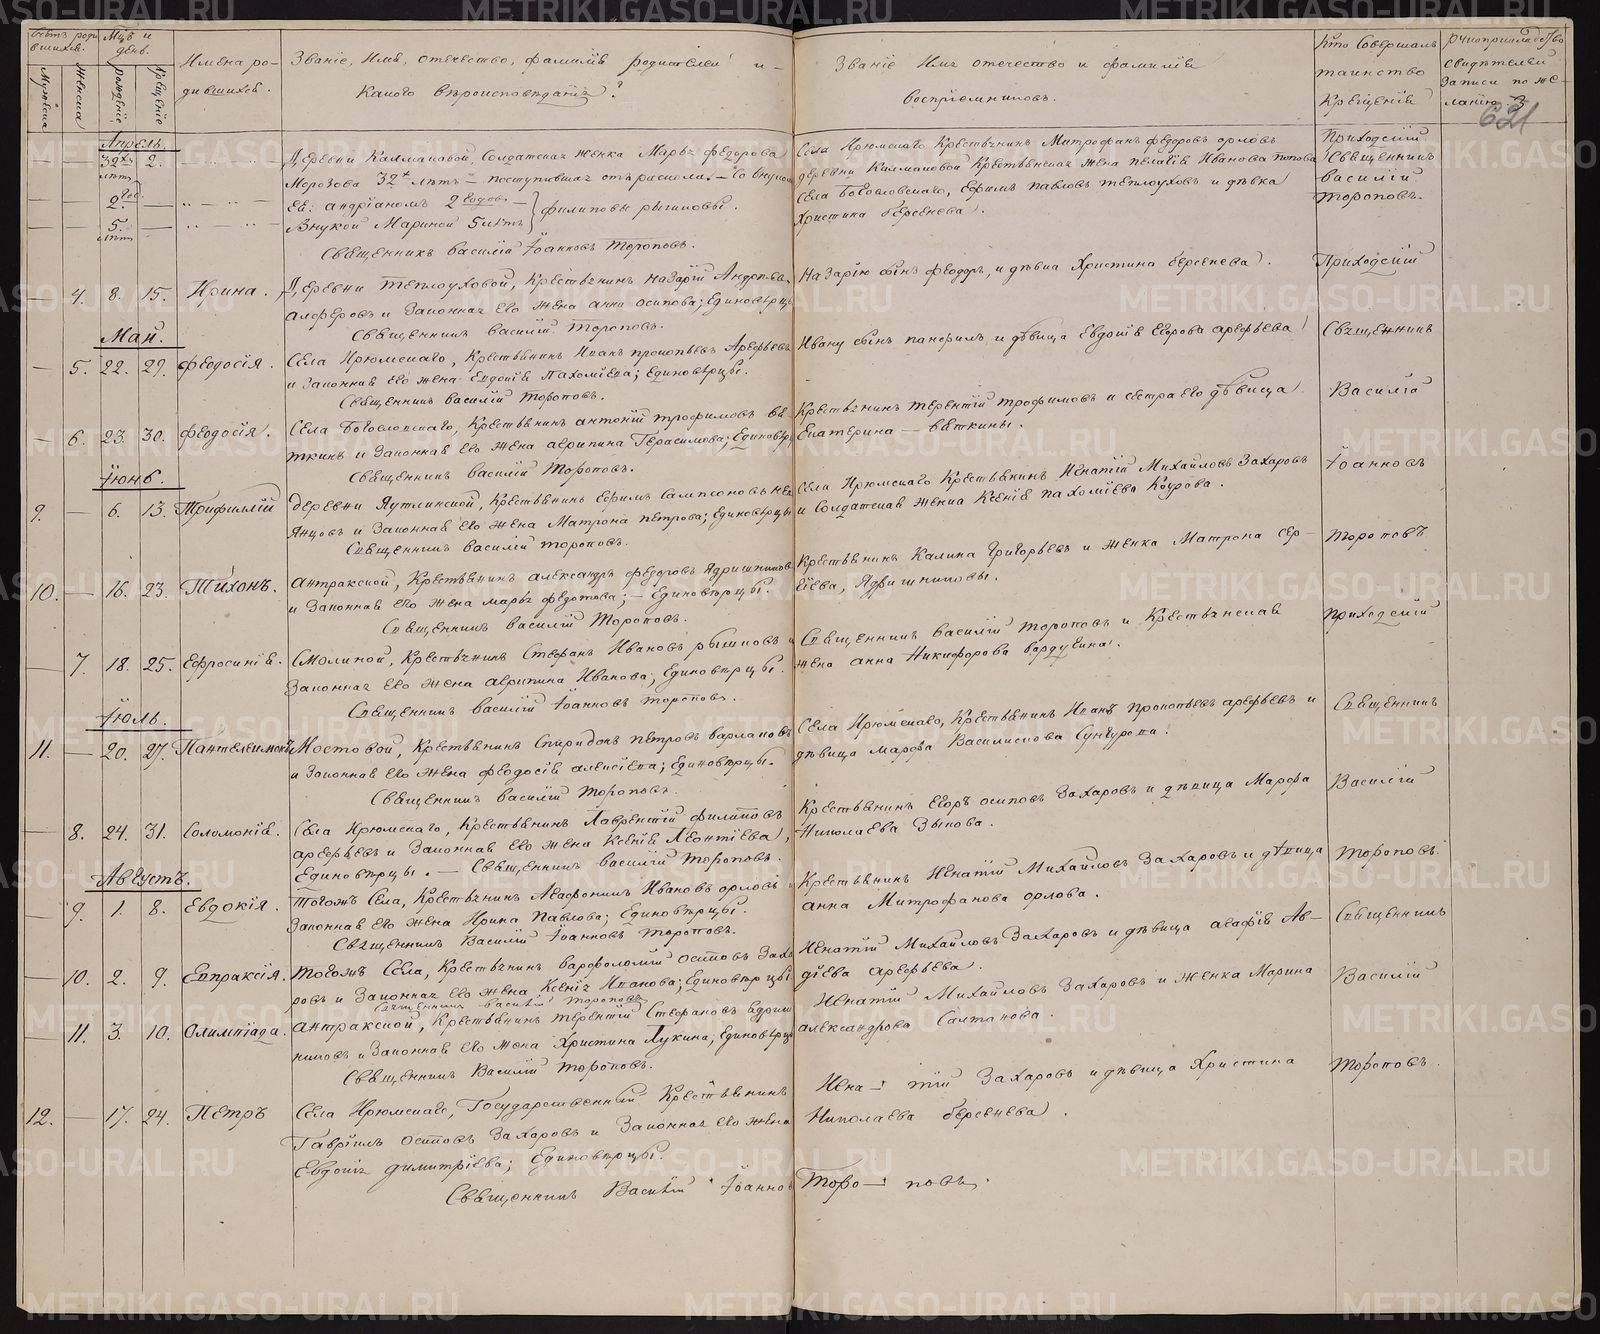 Счетъ родившихся.
Мужеска
Женска
Мцъ и день.
рожденіе
крещеніе
Имена родившихся.
Званіе, Имя, отечество, фамилія родителей и
какого вѣроисповѣданія?
Званіе Имя отечество и фамилія
воспріемниковъ.
Кто Совершалъ
таинство
Крещенія
свидѣтелей
записи по же-
ланію.
621
Апрѣль.
32хъ лѣтъ 2. Деревни Калмаковой, Солдатская женка Марья Федорова
Морозова 32хъ лѣтъ – поступившая отъ раскола. – Со внукомъ
2 год. Ея: андріаномъ 2 годовъ –
5. лѣтъ Внукой Мариной 5 лѣтъ
филиповы рычковы.
Священникъ Василій Іоанновъ Тороповъ.
Села Ирюмскаго Крестьянинъ Митрофанъ Федоровъ орловъ
деревни Калмаковой Крестьянская жена пелагія Иванова попова
Села Боголовскаго, Ефримъ павловъ теплоуховъ и дѣвка
Христина берсенева.
Приходскій
Священникъ
Василій
Тороповъ.
4. 8. 15. Ирина. Деревни теплоуховой, Крестьянинъ Назарій Андреевъ
алферовъ и Законная Его жена анна осипова; Единовѣрцы
Священникъ Василій Тороповъ.
Назарію сынъ феодоръ, и дѣвица Христина берсенева.
Приходскій
Май.
5. 22. 29. феодосія. Села Ирюмскаго, Крестьянинъ Иванъ прокопьевъ Арефьевъ
и Законная Его жена Евдокія Пахоміева; Единовѣрцы.
Священникъ Василій Тороповъ.
Ивану сынъ панфилъ и дѣвица Евдокія Егорова арефьева
Священникъ
6. 23. 30. феодосія. Села Боголовскаго, Крестьянинъ антоній трофимовъ вя
ткинъ и Законная Его жена агрипина Герасимова; Единовѣр
Священникъ Василій Тороповъ.
Крестьянинъ терентій трофимовъ и сестра его дѣвица
Екатерина – вяткины.
Василій
Іюнь.
9. 6. 13. Трифиллій деревни Яутлинской, Крестьянинъ Ефимъ Сампсоновъ
Янцовъ и Законная Его жена Матрона петрова; Единовѣрцы
Священникъ Василій Тороповъ.
Села Ирюмскаго Крестьянинъ Игнатій Михайловъ Захаровъ
и Солдатская женка Ксенія пахоміева Коурова.
Іоанновъ
10. 16. 23. Тихонъ. Антракской, Крестьянинъ александръ федоровъ Ядришников
и Законная Его жена марья федотова; – Единовѣрцы.
Священникъ Василій Тороповъ.
Крестьянинъ Калина Григорьевъ и женка Матрона Сер-
гіева, Ядришниковы.
Тороповъ
7. 18. 25. Ефросинія. Смолиной, Крестьянинъ Стефанъ Ивановъ рычковъ и
Законная Его жена агрипина Иванова; Единовѣрцы.
Священникъ Василій Іоанновъ Тороповъ.
Священникъ Василій Тороповъ и Крестьянская
жена анна Никифорова бардукина.
приходскій
Іюль.
11. 20. 27. Пантелеимонъ Мостовой, Крестьянинъ Спиридонъ петровъ варлаковъ
и Законная Его жена феодосія алексіева; Единовѣрцы.
Священникъ Василій Тороповъ.
Села Ирюмскаго, Крестьянинъ Иванъ прокопьевъ арефьевъ и
дѣвица марфа Василискова Сунгурова.
Священникъ
8. 24. 31. Соломонія. Села Ирюмскаго, Крестьянинъ Лаврентій филиповъ
арефьевъ и Законная Его жена Ксенія Леонтіева,
Единовѣрцы. – Священникъ Василій Тороповъ.
Крестьянинъ Егоръ осиповъ Захаровъ и дѣвица Марфа
Николаева Зыкова.
Василій
Августъ.
9. 1. 8. Евдокія. Тогожъ Села, Крестьянинъ Агафоникъ Ивановъ орловъ и
Законная Его жена Ирина Павлова; Единовѣрцы.
Священникъ Василій Іоанновъ Тороповъ.
Крестьянинъ Игнатій Михайловъ Захаровъ и дѣвица
анна Митрофанова орлова.
Тороповъ.
10. 2. 9. Евпраксія. Тогожъ Села, Крестьянинъ варфоломій осиповъ Заха
ровъ и Законная Его жена Ксенія Иванова; Единовѣрцы
Священникъ Василій Тороповъ
Игнатій Михайловъ Захаровъ и дѣвица агафія Ав-
діева арефьева.
Священникъ
11. 3. 10. Олимпіада. Антракской, Крестьянинъ терентій Стефановъ Ядриш
никовъ и Законная Его жена Христина Лукина, Единовѣрцы
Священникъ Василій Тороповъ.
Игнатій Михайловъ Захаровъ и женка Марина
александрова Салтанова.
Василій
12. 17. 24. Петръ Села Ирюмскаго, Государственный Крестьянинъ
Гавріилъ осиповъ Захаровъ и Законная его жена
Евдокія димитріева; Единовѣрцы.
Священникъ Василій Іоанно Торо – повъ.
Игна – тій Захаровъ и дѣвица Христина
Николаева берсенева.
Тороповъ.
METRIKI.GASO-URAL.RU